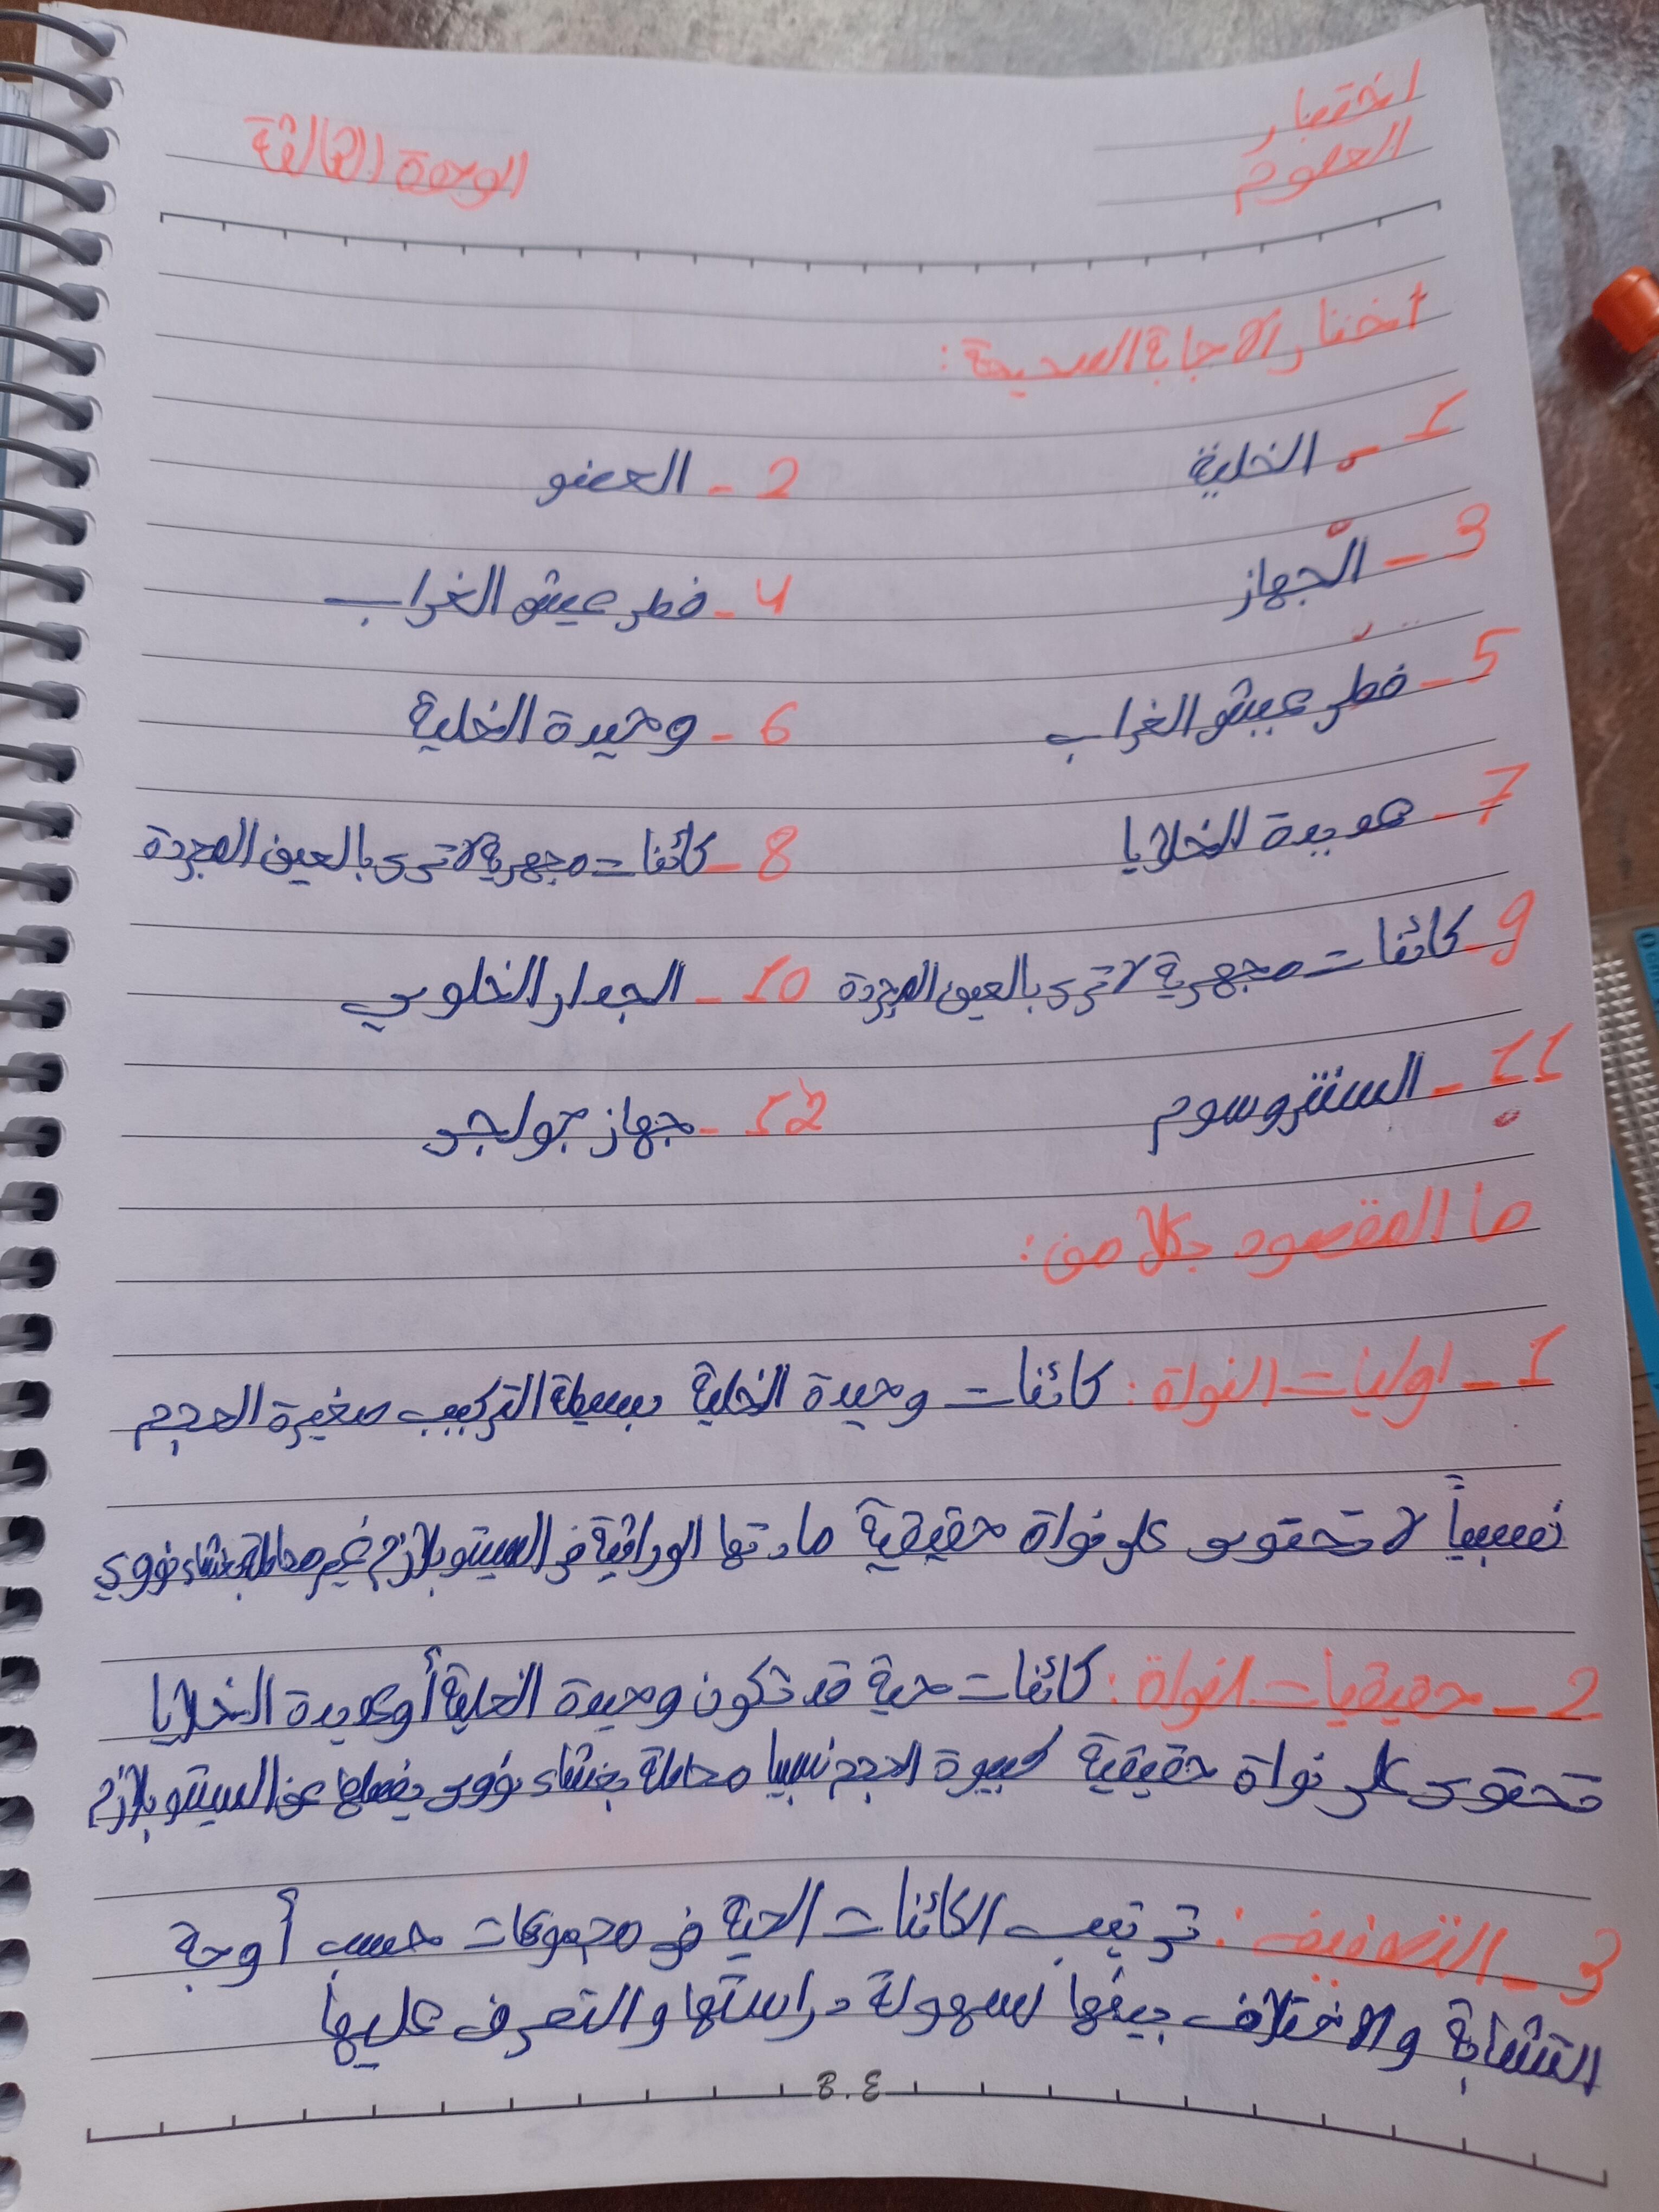 اختبار
العلوم
الوحدة الثالثة
أختار الاجابة الصحيحة:
1 - الخلية
2 - العضو
3 - الجهاز
4 - فطر عيش الغراب
5 - فطر عيش الغراب
6 - وحيدة الخلية
7 - عديدة الخلايا
8 - كائنات مجهرية لا ترى بالعين المجردة
9 - كائنات مجهرية لا ترى بالعين المجردة
10 - الجدار الخلوي
11 - السنتروسوم
12 - جهاز جولجي
ما المقصود بكلا من:
1 - اوليات النواة: كائنات وحيدة الخلية بسيطة التركيب صغيرة الحجم
نسبياً لا تحتوى على نواة حقيقية مادتها الوراثية في السيتوبلازم غير محاطة بغشاء نووي
2 - حقيقيات النواة: كائنات حية قد تكون وحيدة الخلية أو عديدة الخلايا
تحتوى على نواة حقيقية كبيرة الحجم نسبيا محاطة بغشاء نووى يفصلها عن السيتوبلازم
3 - التصنيف: ترتيب الكائنات الحية في مجموعات حسب أوجة
التشابة والاختلاف بينها لسهولة دراستها والتعرف عليها
B.E